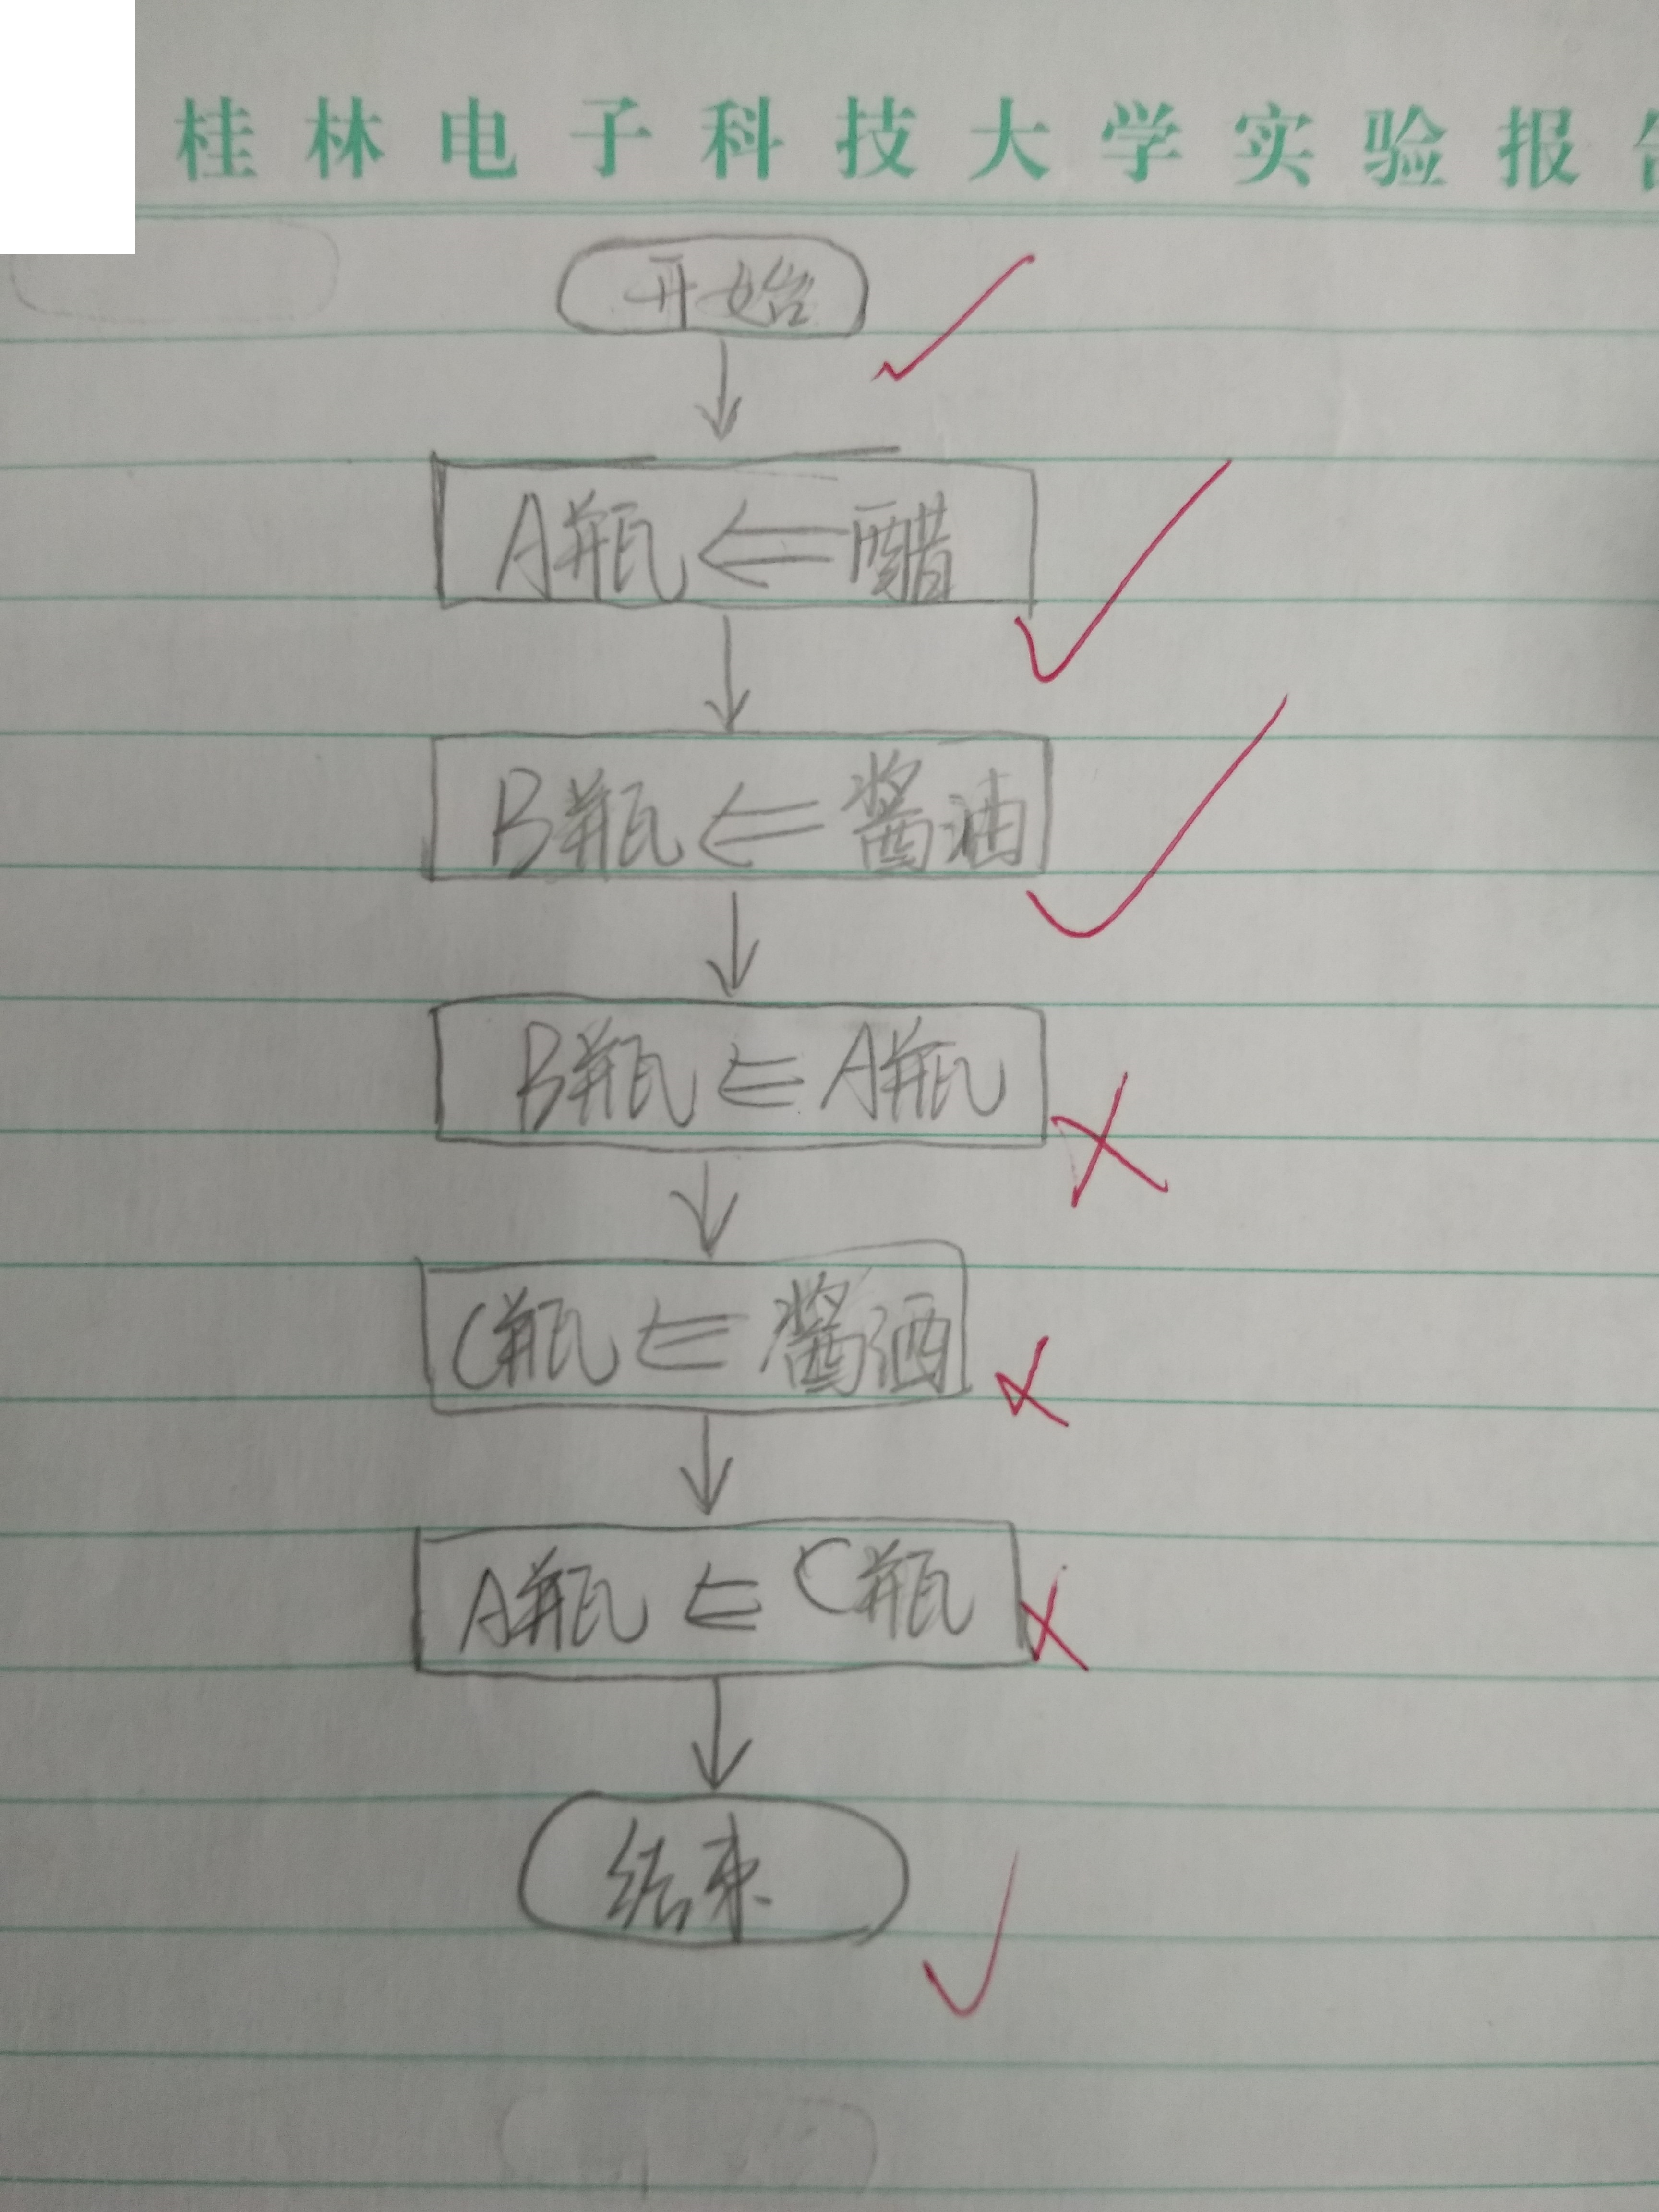 桂林电子科技大学实验报告
开始
A瓶⇐醋
B瓶⇐酱油
B瓶⇐A瓶
C瓶⇐酱洒
A瓶⇐C瓶
结束